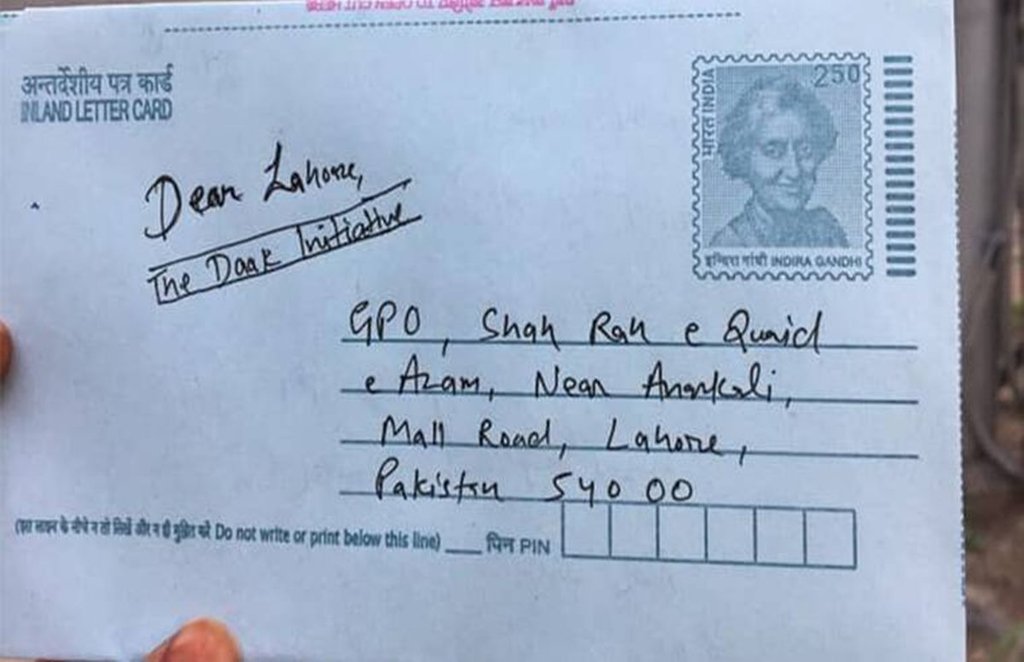 अन्तर्देशीय पत्र कार्ड
INLAND LETTER CARD
250
भारत INDIA
इन्दिरा गांधी INDIRA GANDHI
Dear Lahore,
The Daak Initiative
GPO, Shah Rah e Quaid
e Azam, Near Anarkali,
Mall Road, Lahore,
Pakistan 54000
(इस लाइन के नीचे न तो लिखें और न ही मुद्रित करें Do not write or print below this line) ____ पिन PIN